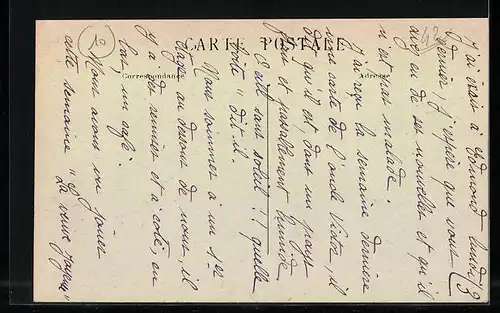 CARTE POSTALE
Correspondance
Adresse
2
J'ai écrit à Edmond lundi
dernier, j'espère que vous
avez eu de ses nouvelles et qu'il
n'est pas malade.
J'ai reçu la semaine dernière
une carte de l'oncle Victor, il
dit qu'il est dans un pays
plat et passablement humide
sans soleil !! quelle
boîte" dit-il.
Nous sommes à un 1er
étage au dessous de nous, il
y a des et à coté, en
bas un café.
Nous avons vu jouer
cette semaine "La veuve joyeuse"